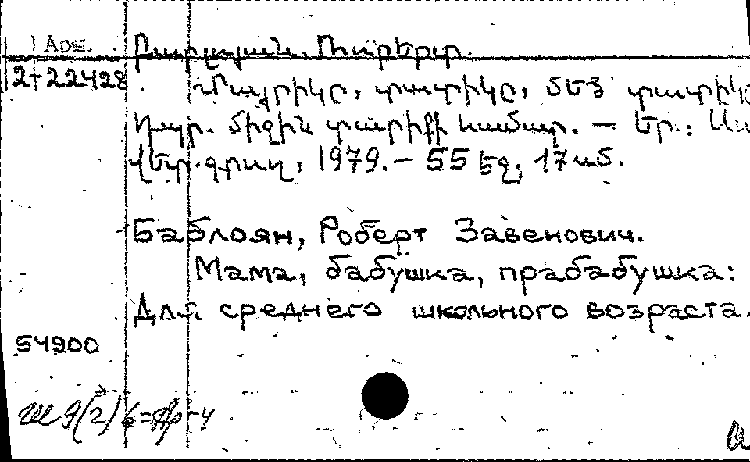 1 Арм.
Բաբլոյան, Ռոբերտ.
12+22428
Մայրիկը, տատիկը, մեծ տատիկ
Դպր. միջին տարիքի համար. — Եր.:
գրող, 1979. — 55 եջ, 17 սմ.
Баблоян, Роберт Завенович.
Мама, бабушка, прабабушка:
Для среднего школьного возраста.
54900